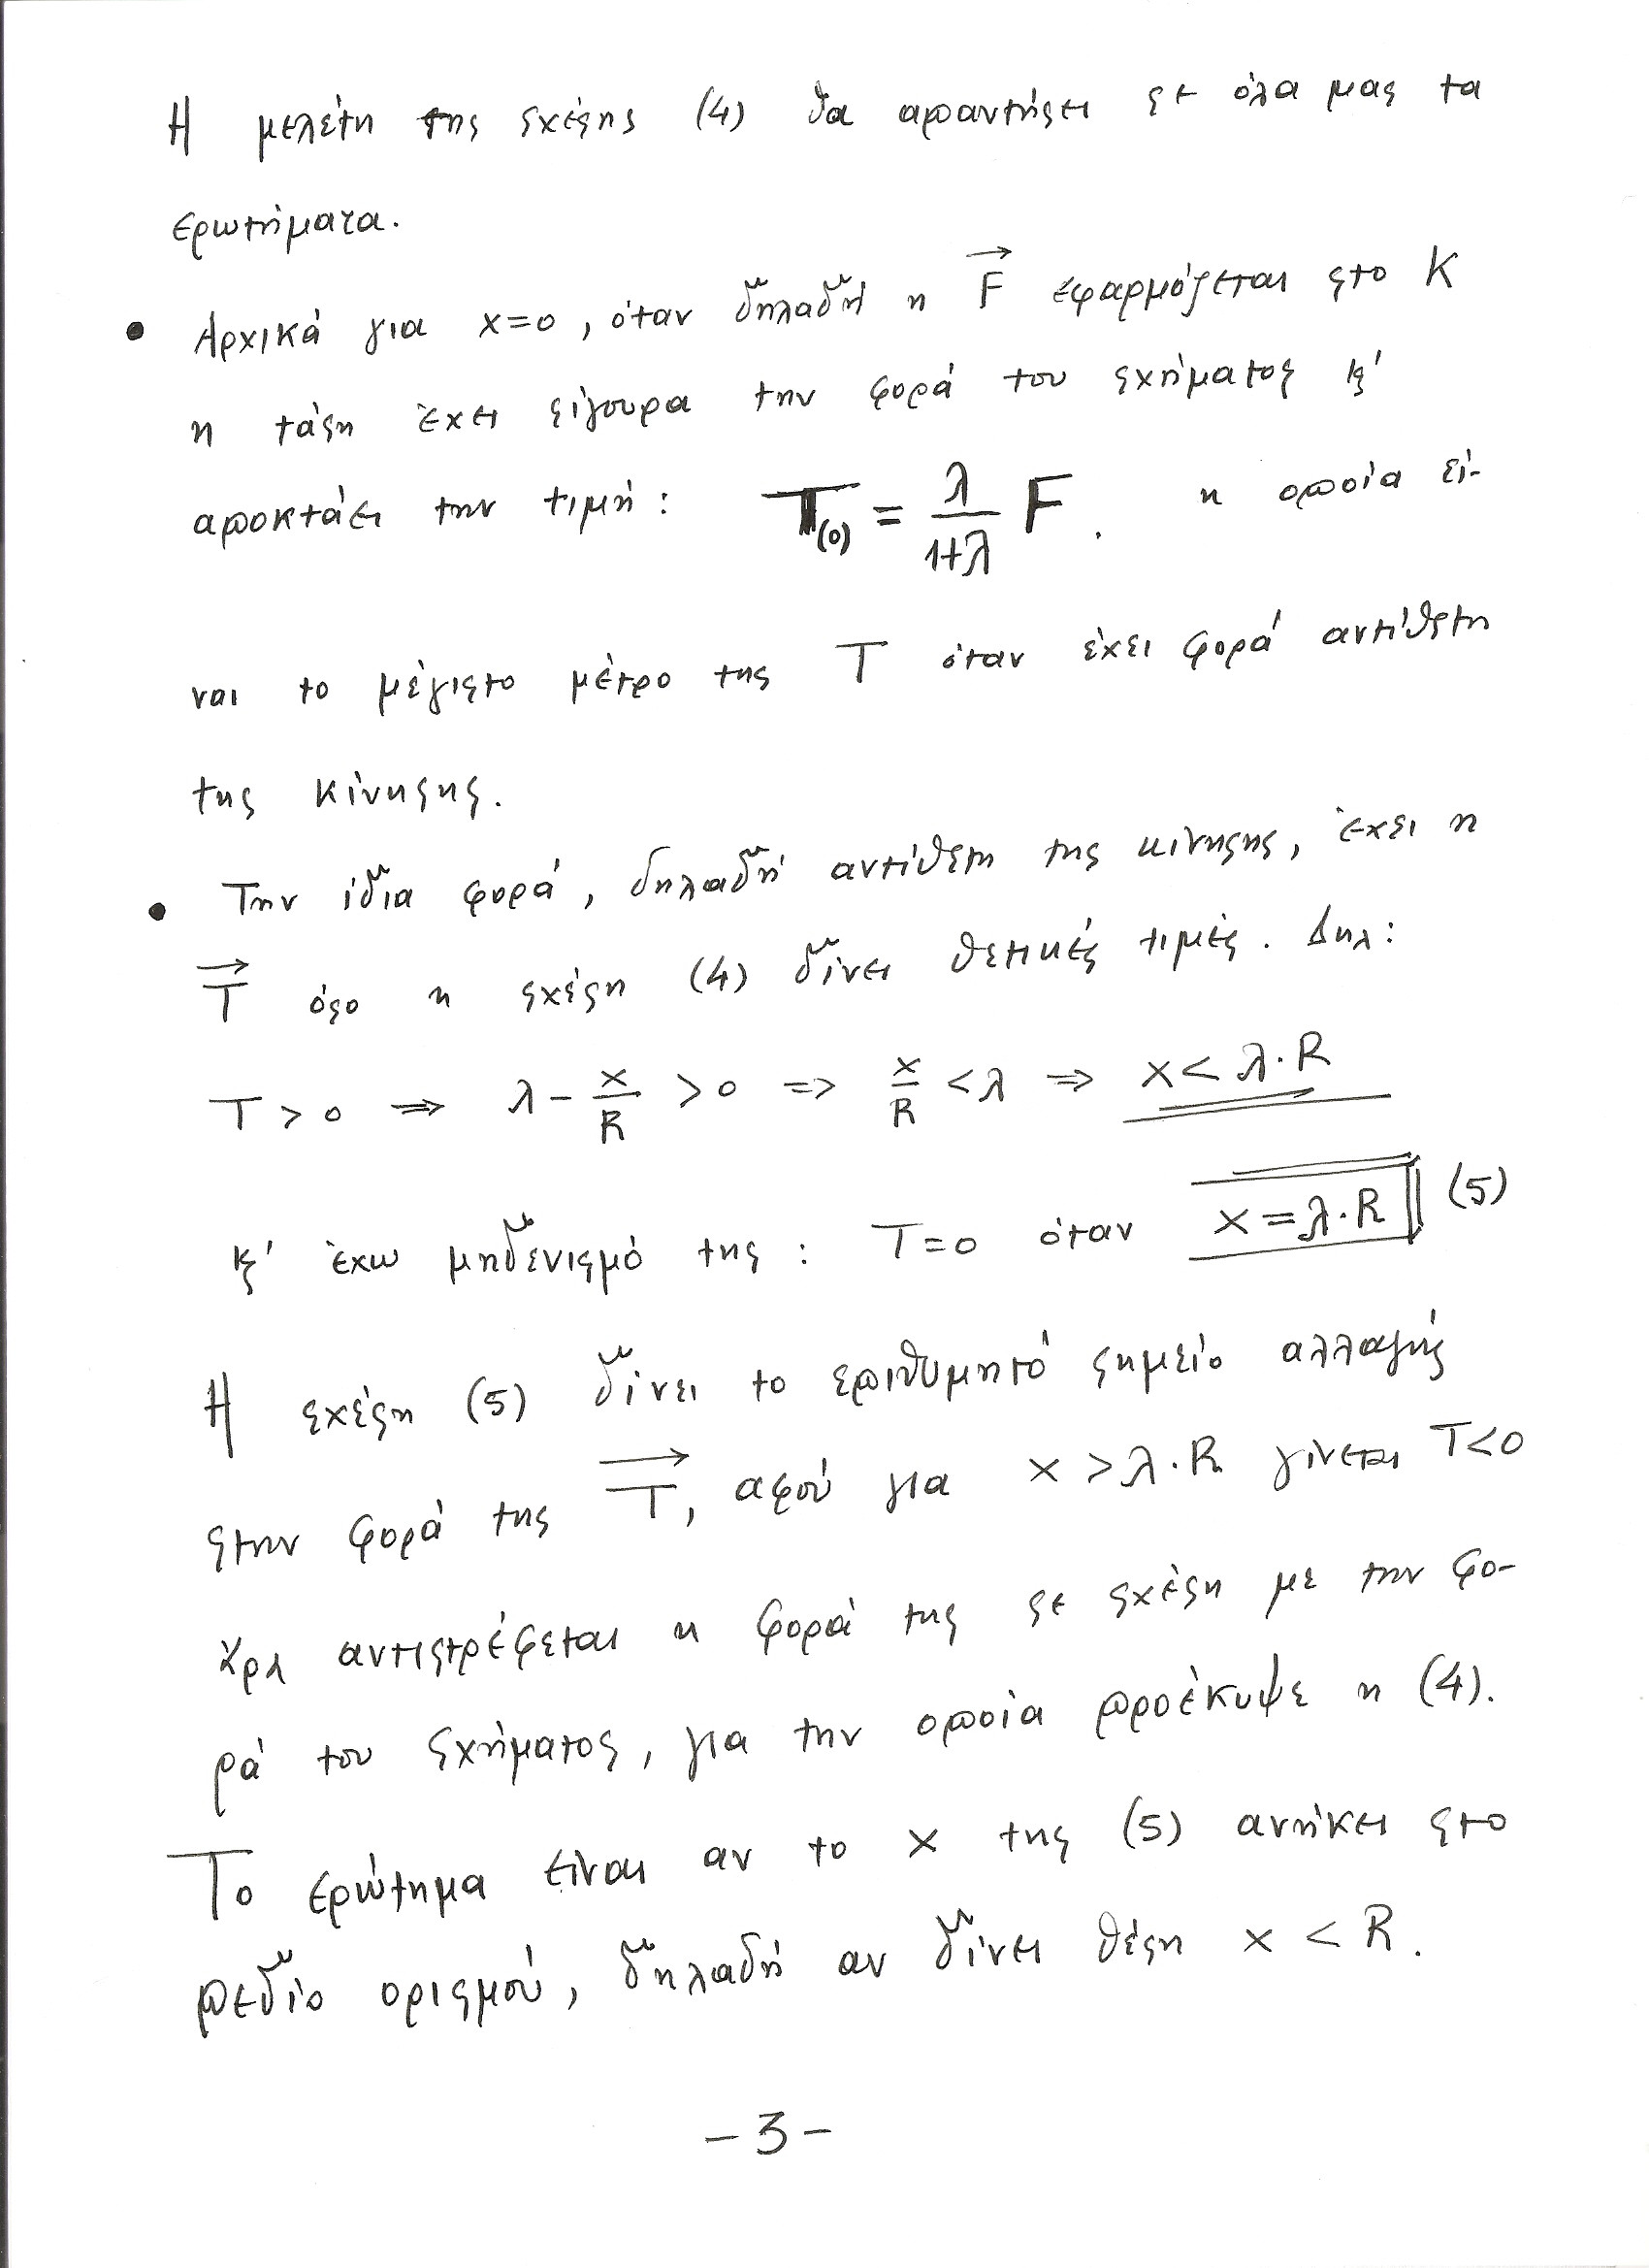 Η μελέτη της σχέσης (4) θα απαντήσει σε όλα μας τα
ερωτήματα.
• Αρχικά για x=0, όταν δηλαδή η F⃗ εφαρμόζεται στο K
η τάση έχει σίγουρα την φορά του σχήματος κ'
αποκτάει την τιμή: T(0) = λ/(1+λ) F. η οποία εί-
ναι το μέγιστο μέτρο της T όταν έχει φορά αντίθετη
της κίνησης.
• Την ίδια φορά, δηλαδή αντίθετη της κίνησης, έχει η
T⃗ όσο η σχέση (4) δίνει θετικές τιμές. Δηλ:
T > 0 ⇒ λ - x/R > 0 ⇒ x/R < λ ⇒ x < λ·R
κ' έχω μηδενισμό της : T=0 όταν x = λ·R (5)
Η σχέση (5) δίνει το επιθυμητό σημείο αλλαγής
στην φορά της T⃗, αφού για x > λ·R γίνεται T<0
άρα αντιστρέφεται η φορά της σε σχέση με την φο-
ρά του σχήματος, για την οποία προέκυψε η (4).
Το ερώτημα είναι αν το x της (5) ανήκει στο
πεδίο ορισμού, δηλαδή αν δίνει θέση x < R.
-3-